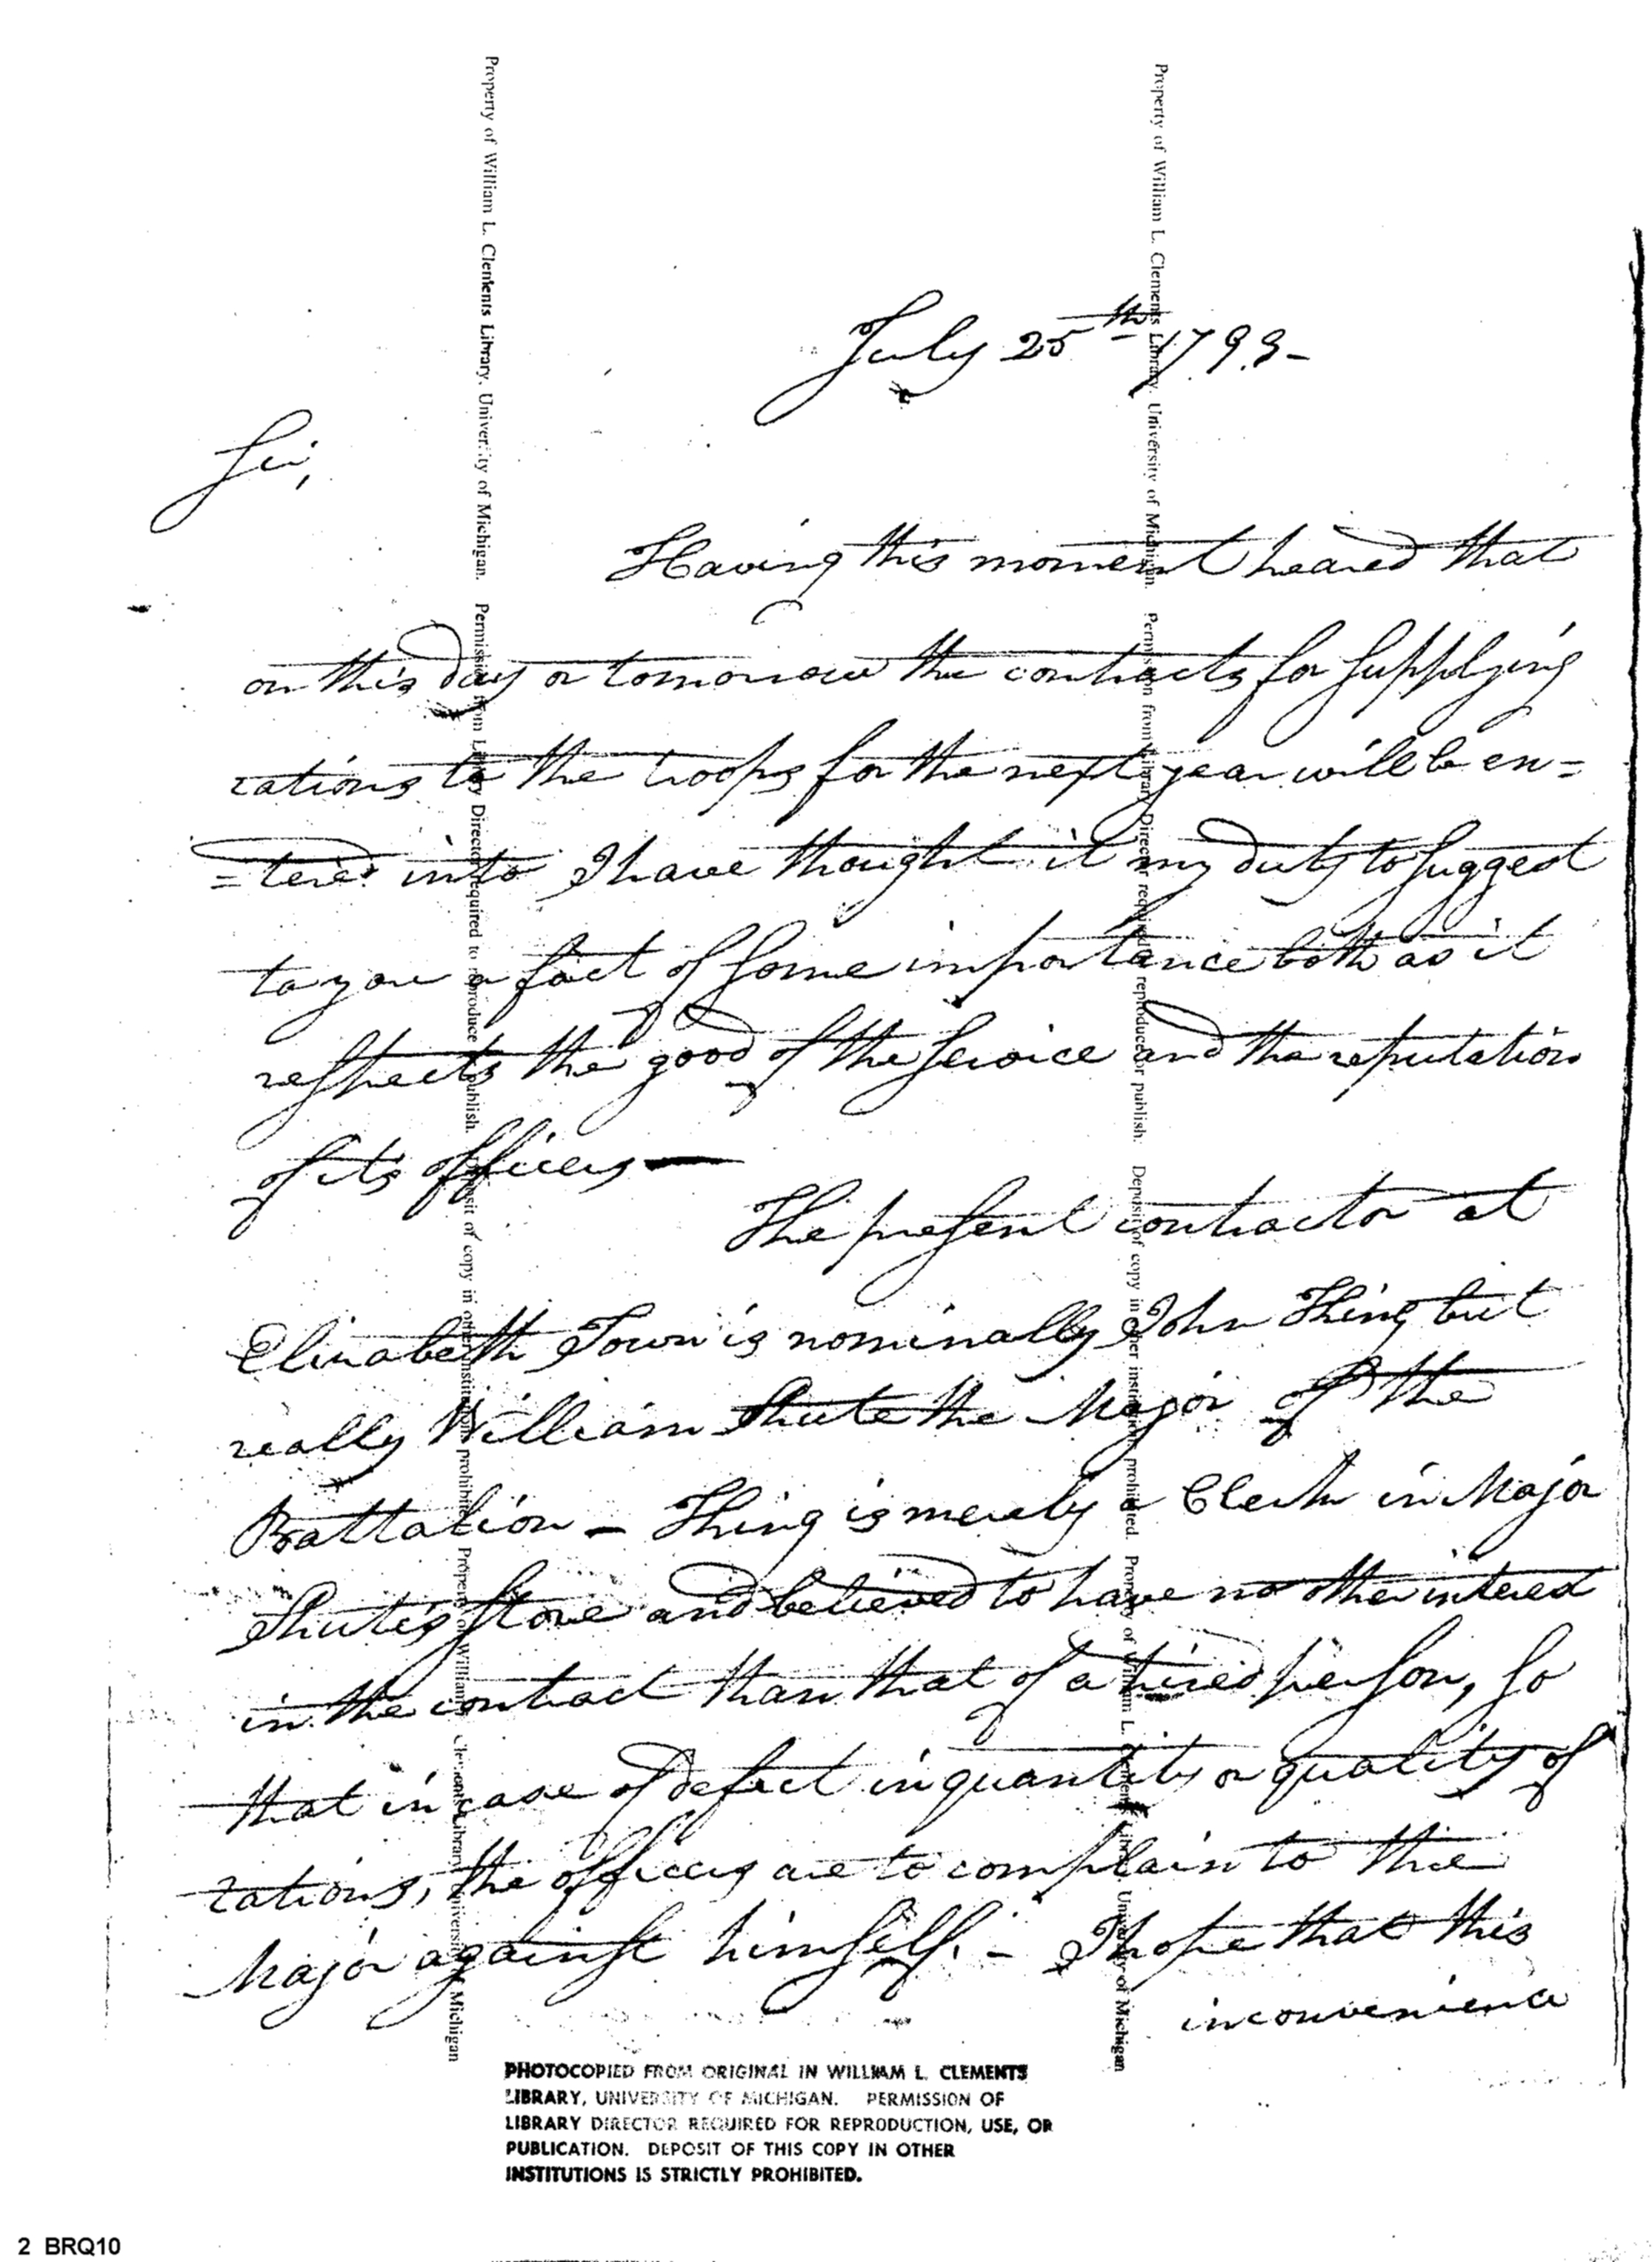 July 25th 1793-
Sir,
Having this moment heared that
on this day or tomorrow the contracts for supplying
rations to the troops for the next year will be en=
=tered into I have thought it my duty to suggest
to you a fact of some importance both as it
respects the good of the service and the reputation
of its officers —
The present contractor at
Elizabeth Town is nominally John Thing but
really William Shute the Major of the
Battalion - Thing is merely a Clerk in Major
Shute's store and believed to have no other interest
in the contract than that of a hired person, so
that in case of defect in quantity or quality of
rations, the officers are to complain to the
Major against himself. - I hope that this
inconvenience
Property of William L. Clements Library, University of Michigan. Permission from Library Director required to reproduce or publish. Deposit of copy in other institutions prohibited. Property of William L. Clements Library, University of Michigan
Property of William L. Clements Library, University of Michigan. Permission from Library Director required to reproduce or publish. Deposit of copy in other institutions prohibited. Property of William L. Clements Library, University of Michigan
PHOTOCOPIED FROM ORIGINAL IN WILLIAM L. CLEMENTS
LIBRARY, UNIVERSITY OF MICHIGAN. PERMISSION OF
LIBRARY DIRECTOR REQUIRED FOR REPRODUCTION, USE, OR
PUBLICATION. DEPOSIT OF THIS COPY IN OTHER
INSTITUTIONS IS STRICTLY PROHIBITED.
2 BRQ10